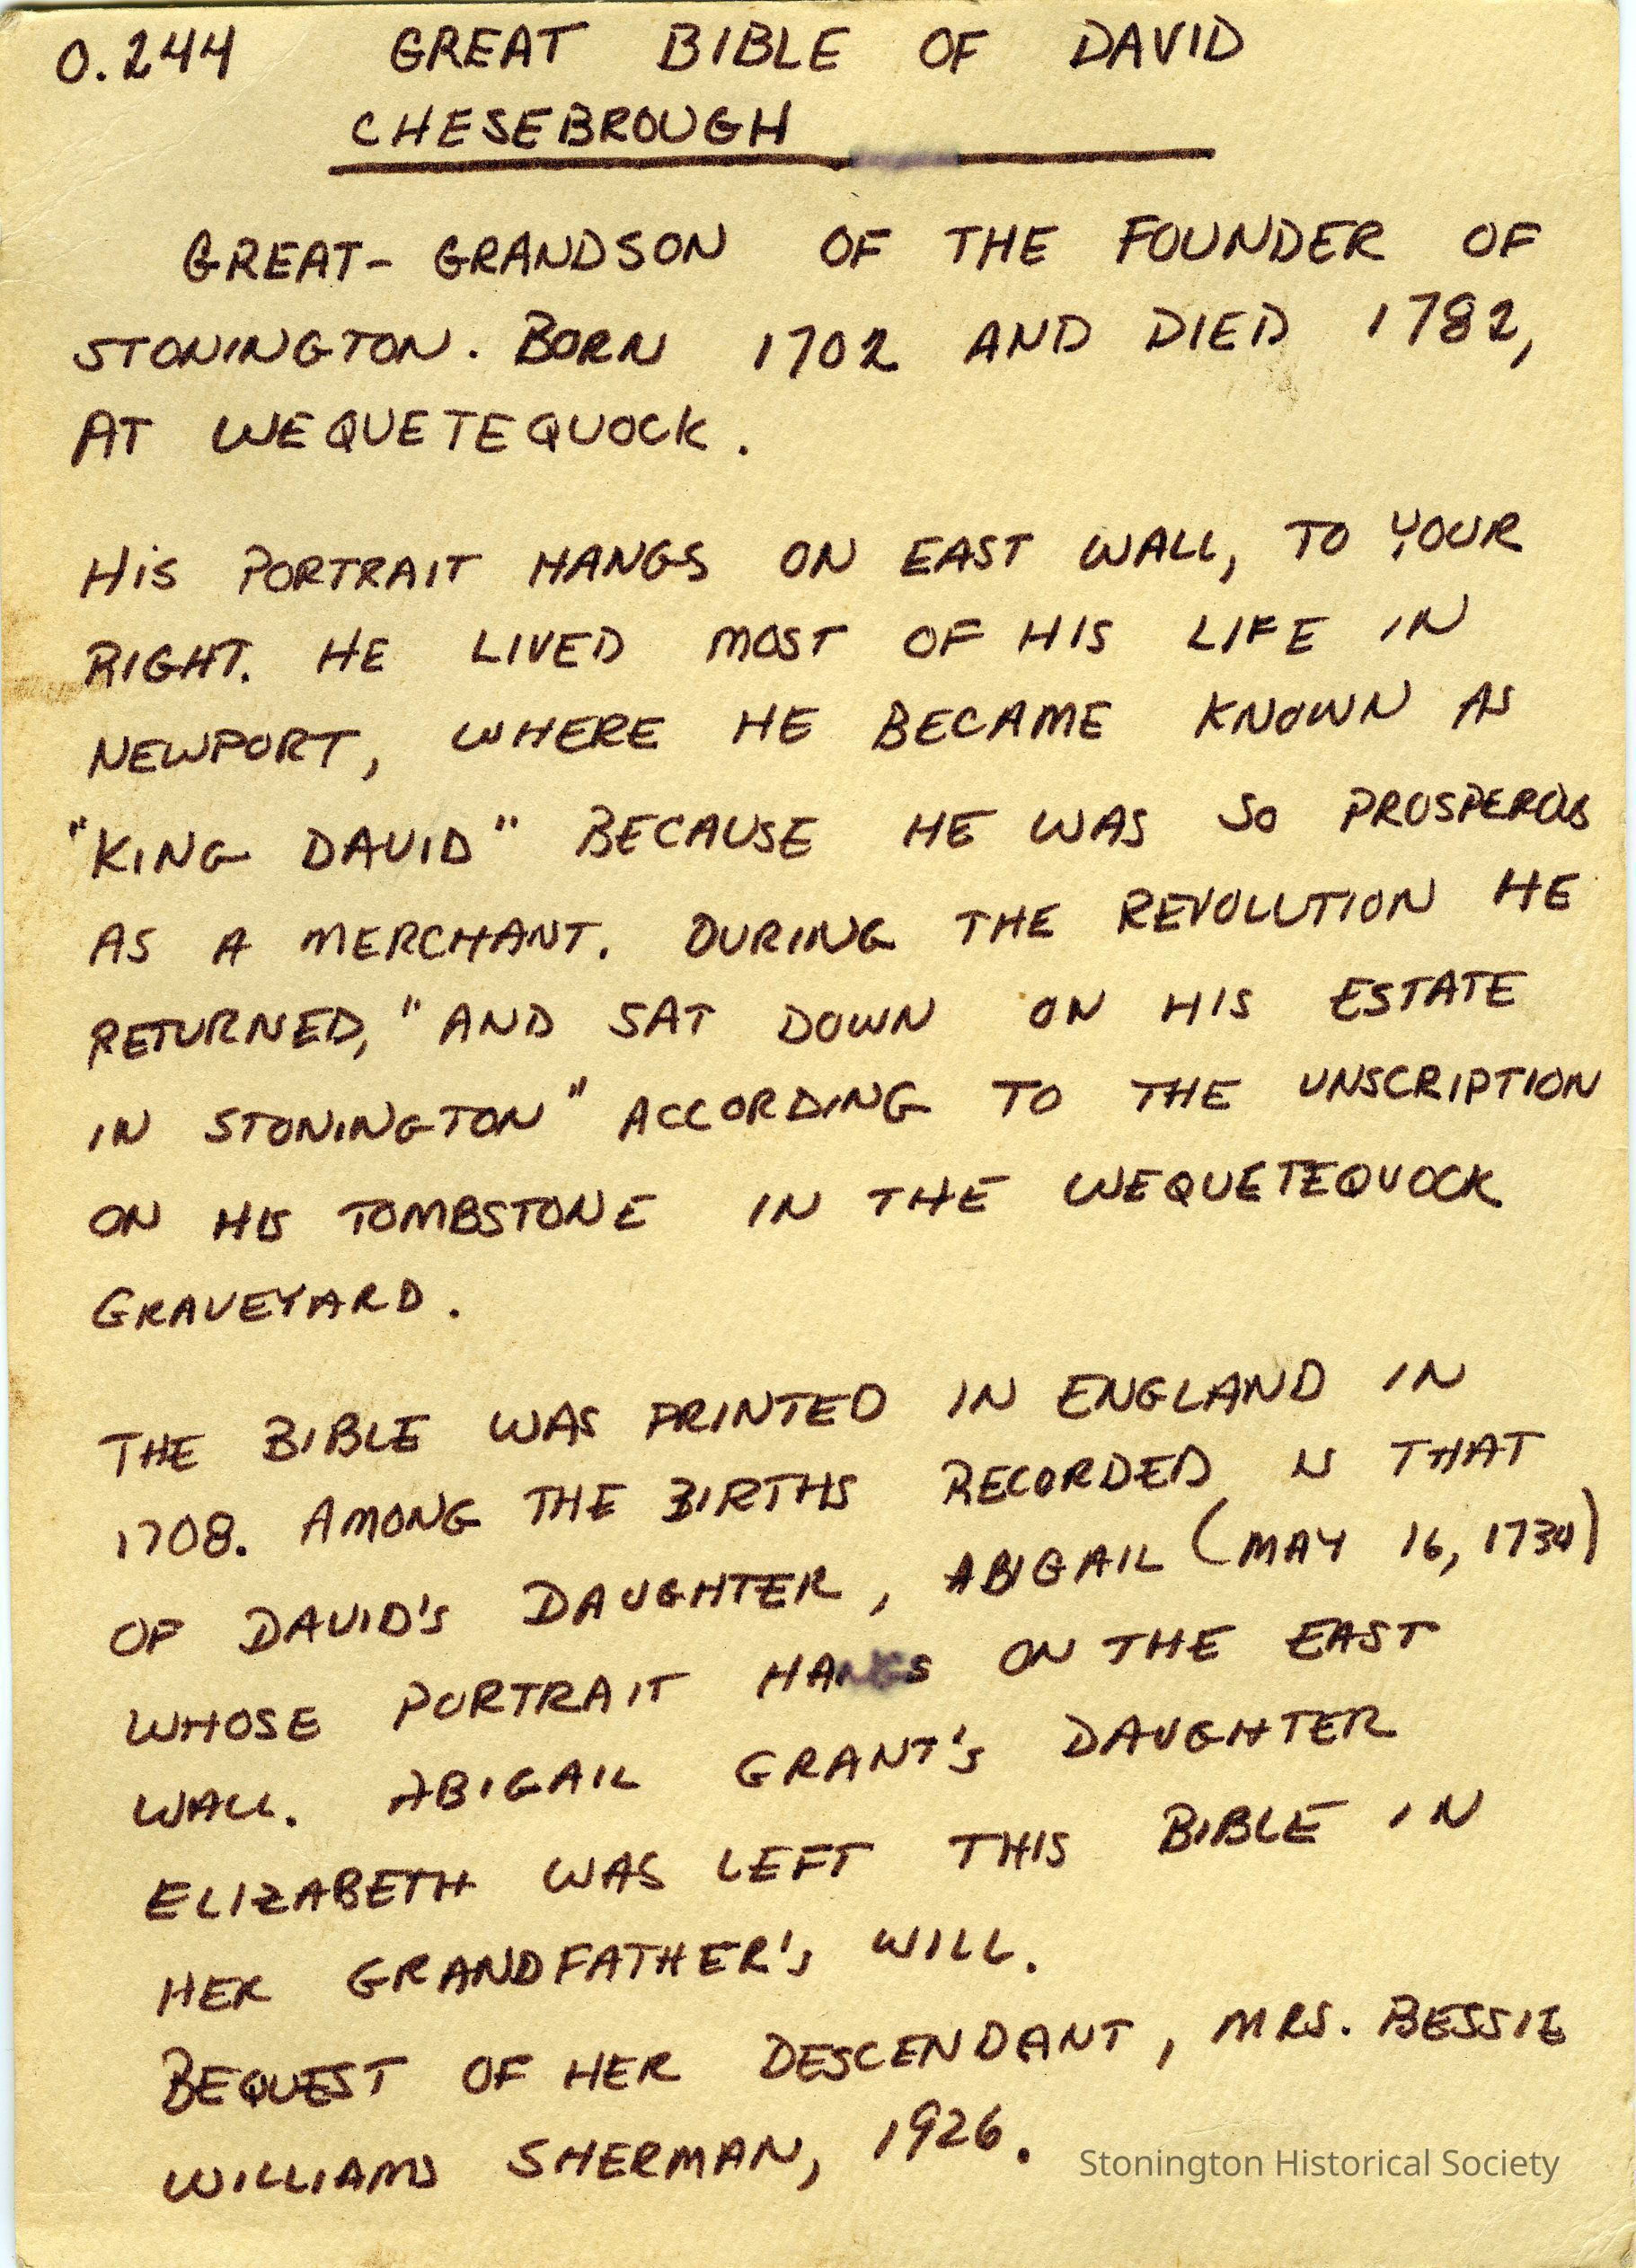 0.244 GREAT BIBLE OF DAVID
CHESEBROUGH
GREAT-GRANDSON OF THE FOUNDER OF
STONINGTON. BORN 1702 AND DIED 1782,
AT WEQUETEQUOCK.
HIS PORTRAIT HANGS ON EAST WALL, TO YOUR
RIGHT. HE LIVED MOST OF HIS LIFE IN
NEWPORT, WHERE HE BECAME KNOWN AS
"KING DAVID" BECAUSE HE WAS SO PROSPEROUS
AS A MERCHANT. DURING THE REVOLUTION HE
RETURNED, "AND SAT DOWN ON HIS ESTATE
IN STONINGTON" ACCORDING TO THE UNSCRIPTION
ON HIS TOMBSTONE IN THE WEQUETEQUOCK
GRAVEYARD.
THE BIBLE WAS PRINTED IN ENGLAND IN
1708. AMONG THE BIRTHS RECORDED IS THAT
OF DAVID'S DAUGHTER, ABIGAIL (MAY 16, 1734)
WHOSE PORTRAIT HANGS ON THE EAST
WALL. ABIGAIL GRANT'S DAUGHTER
ELIZABETH WAS LEFT THIS BIBLE IN
HER GRANDFATHER'S WILL.
BEQUEST OF HER DESCENDANT, MRS. BESSIE
WILLIAMS SHERMAN, 1926.
Stonington Historical Society